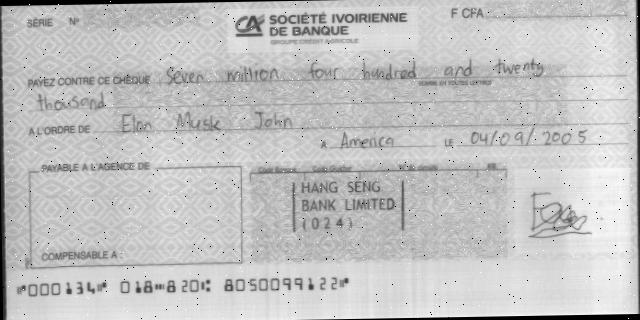 SÉRIE N°
CA SOCIÉTÉ IVOIRIENNE
DE BANQUE
GROUPE CRÉDIT AGRICOLE
F CFA
PAYEZ CONTRE CE CHÈQUE Seven million four hundred and twenty
SOMME EN TOUTES LETTRES
thousand
A L'ORDRE DE Elon Musk John
A America LE 04/09/2005
PAYABLE A L'AGENCE DE
Code Banque Code Guichet
HANG SENG
BANK LIMITED
(024)
COMPENSABLE A :
⑈000134⑈ 018⑉820⑆ 8050099122⑈